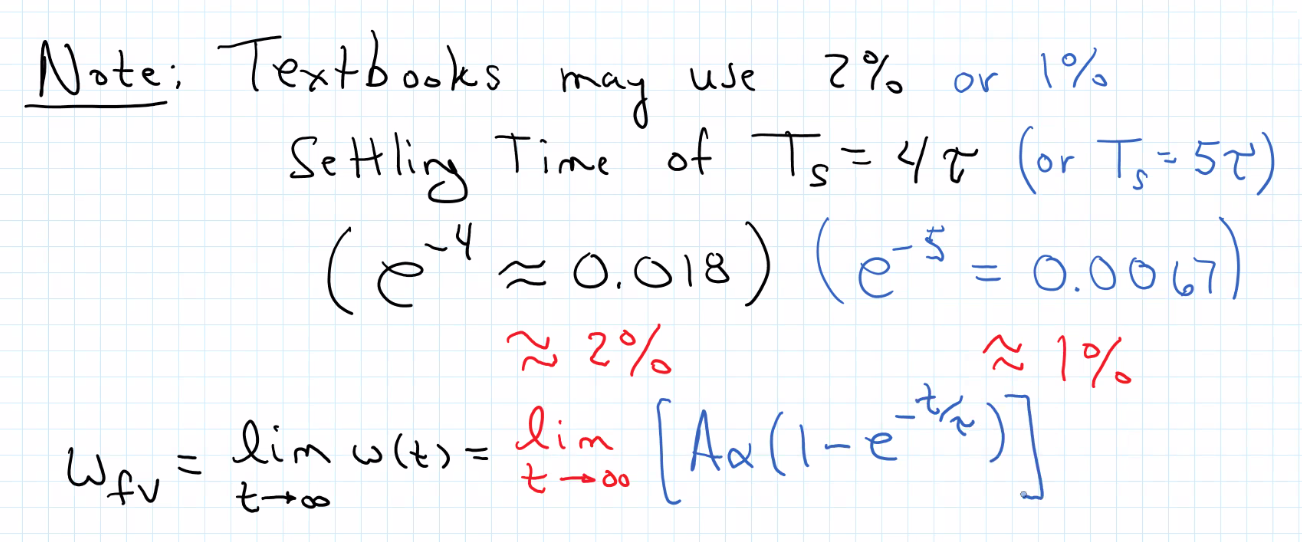 Note: Textbooks may use 2% or 1%
Settling Time of Ts = 4τ (or Ts = 5τ)
(e^-4 ≈ 0.018) (e^-5 = 0.0067)
≈ 2% ≈ 1%
ω_fv = lim t→∞ ω(t) = lim t→∞ [Aα(1 - e^-t/τ)]